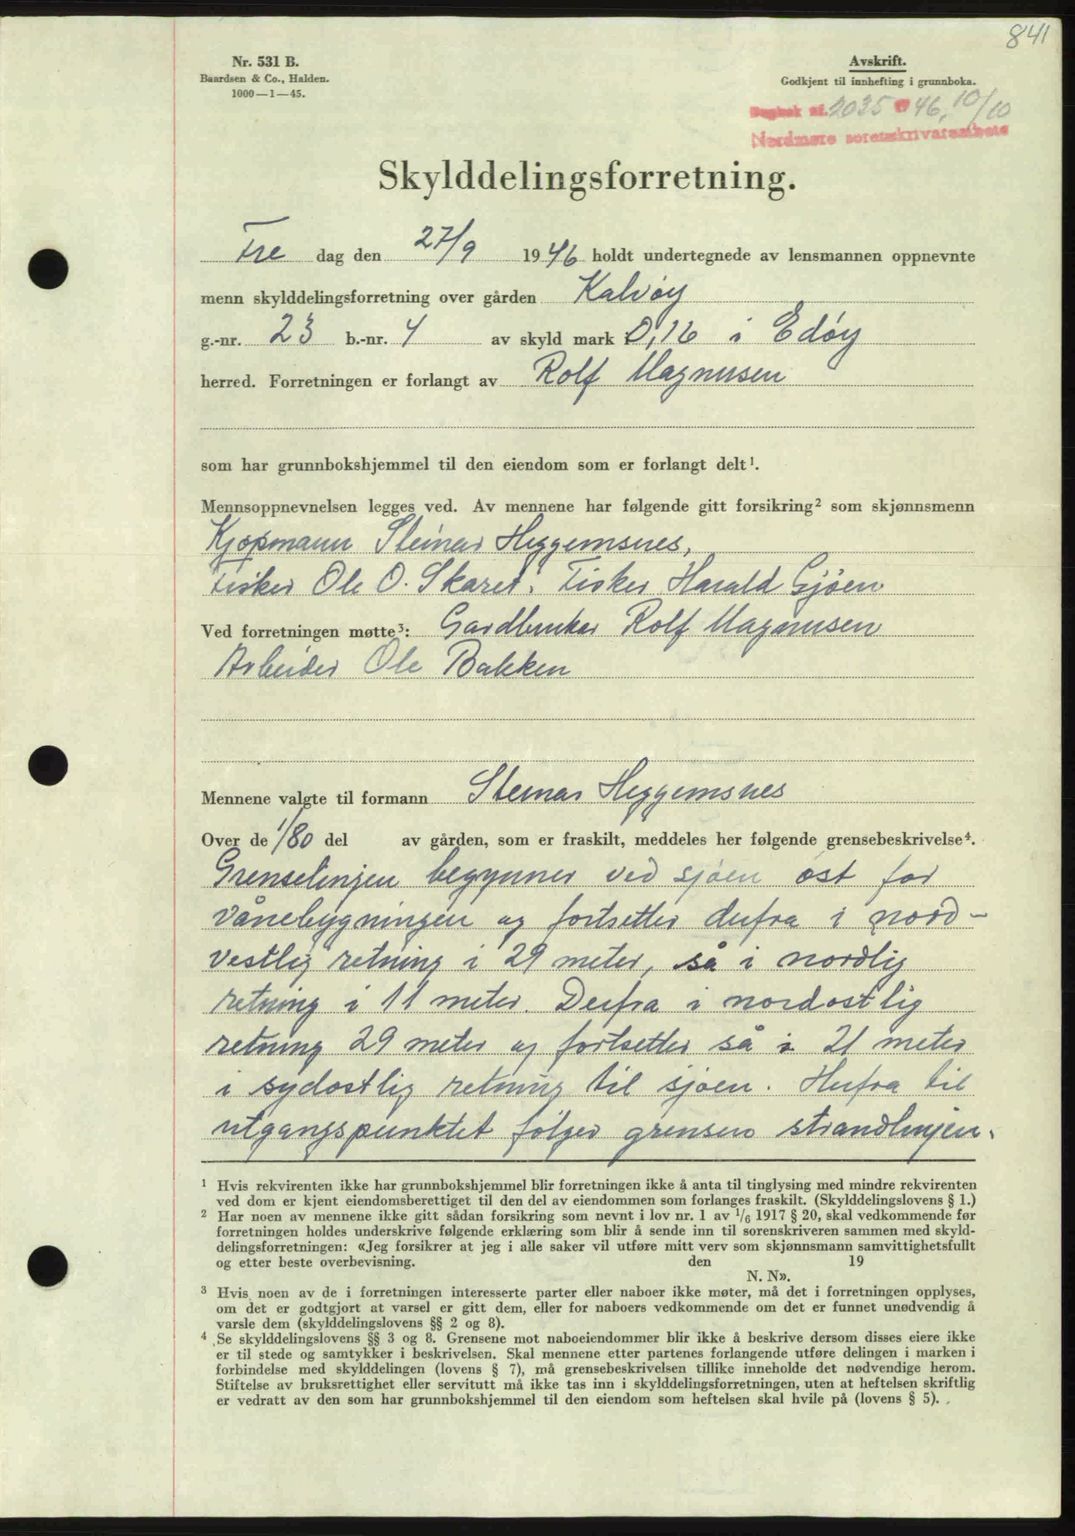 841
Nr. 531 B.
Baardsen & Co., Halden.
1000—1—45.
Avskrift.
Godkjent til innhefting i grunnboka.
Dagbok nr. 2035 1946, 10/10
Nordmøre sorenskriverembete
Skylddelingsforretning.
Fre dag den 27/9 1946 holdt undertegnede av lensmannen oppnevnte
menn skylddelingsforretning over gården Kalvøy
g.-nr. 23 b.-nr. 4 av skyld mark 0,16 i Edøy
herred. Forretningen er forlangt av Rolf Magnusen
som har grunnbokshjemmel til den eiendom som er forlangt delt¹.
Mennsoppnevnelsen legges ved. Av mennene har følgende gitt forsikring² som skjønnsmenn
Kjøpmann Steinar Heggemsnes,
Fisker Ole O. Skaret, Fisker Harald Gjøen
Ved forretningen møtte³: Gardbruker Rolf Magnusen
Arbeider Ole Bakken
Mennene valgte til formann Steinar Heggemsnes
Over de 1/80 del av gården, som er fraskilt, meddeles her følgende grensebeskrivelse⁴.
Grenselinjen begynner ved sjøen øst for
vånebygningen og fortsetter derfra i nord-
vestlig retning i 29 meter, så i nordlig
retning i 11 meter. Derfra i nordøstlig
retning 29 meter og fortsetter så i 21 meter
i sydøstlig retning til sjøen. Herfra til
utgangspunktet følger grensen strandlinjen.
¹ Hvis rekvirenten ikke har grunnbokshjemmel blir forretningen ikke å anta til tinglysing med mindre rekvirenten
ved dom er kjent eiendomsberettiget til den del av eiendommen som forlanges fraskilt. (Skylddelingslovens § 1.)
² Har noen av mennene ikke gitt sådan forsikring som nevnt i lov nr. 1 av 1/6 1917 § 20, skal vedkommende før
forretningen holdes underskrive følgende erklæring som blir å sende inn til sorenskriveren sammen med skyld-
delingsforretningen: «Jeg forsikrer at jeg i alle saker vil utføre mitt verv som skjønnsmann samvittighetsfullt
og etter beste overbevisning. den 19
N. N».
³ Hvis noen av de i forretningen interesserte parter eller naboer ikke møter, må det i forretningen opplyses,
om det er godtgjort at varsel er gitt dem, eller for naboers vedkommende om det er funnet unødvendig å
varsle dem (skylddelingslovens §§ 2 og 8).
⁴ Se skylddelingslovens §§ 3 og 8. Grensene mot naboeiendommer blir ikke å beskrive dersom disses eiere ikke
er til stede og samtykker i beskrivelsen. Skal mennene etter partenes forlangende utføre delingen i marken i
forbindelse med skylddelingen (lovens § 7), må grensebeskrivelsen tillike inneholde det nødvendige herom.
Stiftelse av bruksrettighet eller servitutt må ikke tas inn i skylddelingsforretningen, uten at heftelsen skriftlig
er vedratt av den som har grunnbokshjemmel til den eiendom som heftelsen skal hvile på (lovens § 5).